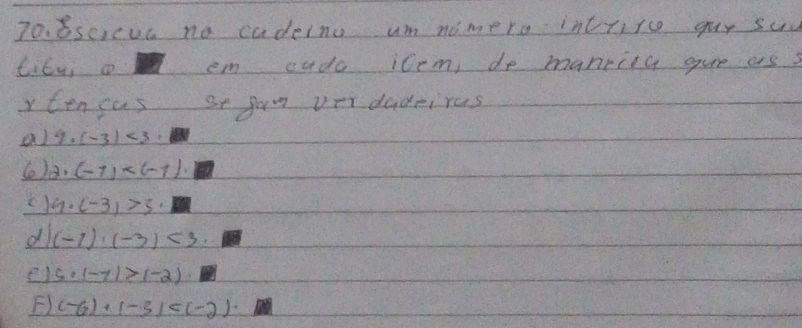 70. Escreva no caderno um número inteiro que su
titui o ■ em cada item, de maneira que as s
xtenças sejam verdadeiras
a) 9.(-3)<3. ■
b) 2.(-7)<(-1). ■
c) 9.(-3)>3. ■
d) (-7).(-3)<3. ■
e) 5.(-7)>(-2). ■
F) (-6).(-3)<(-2). ■